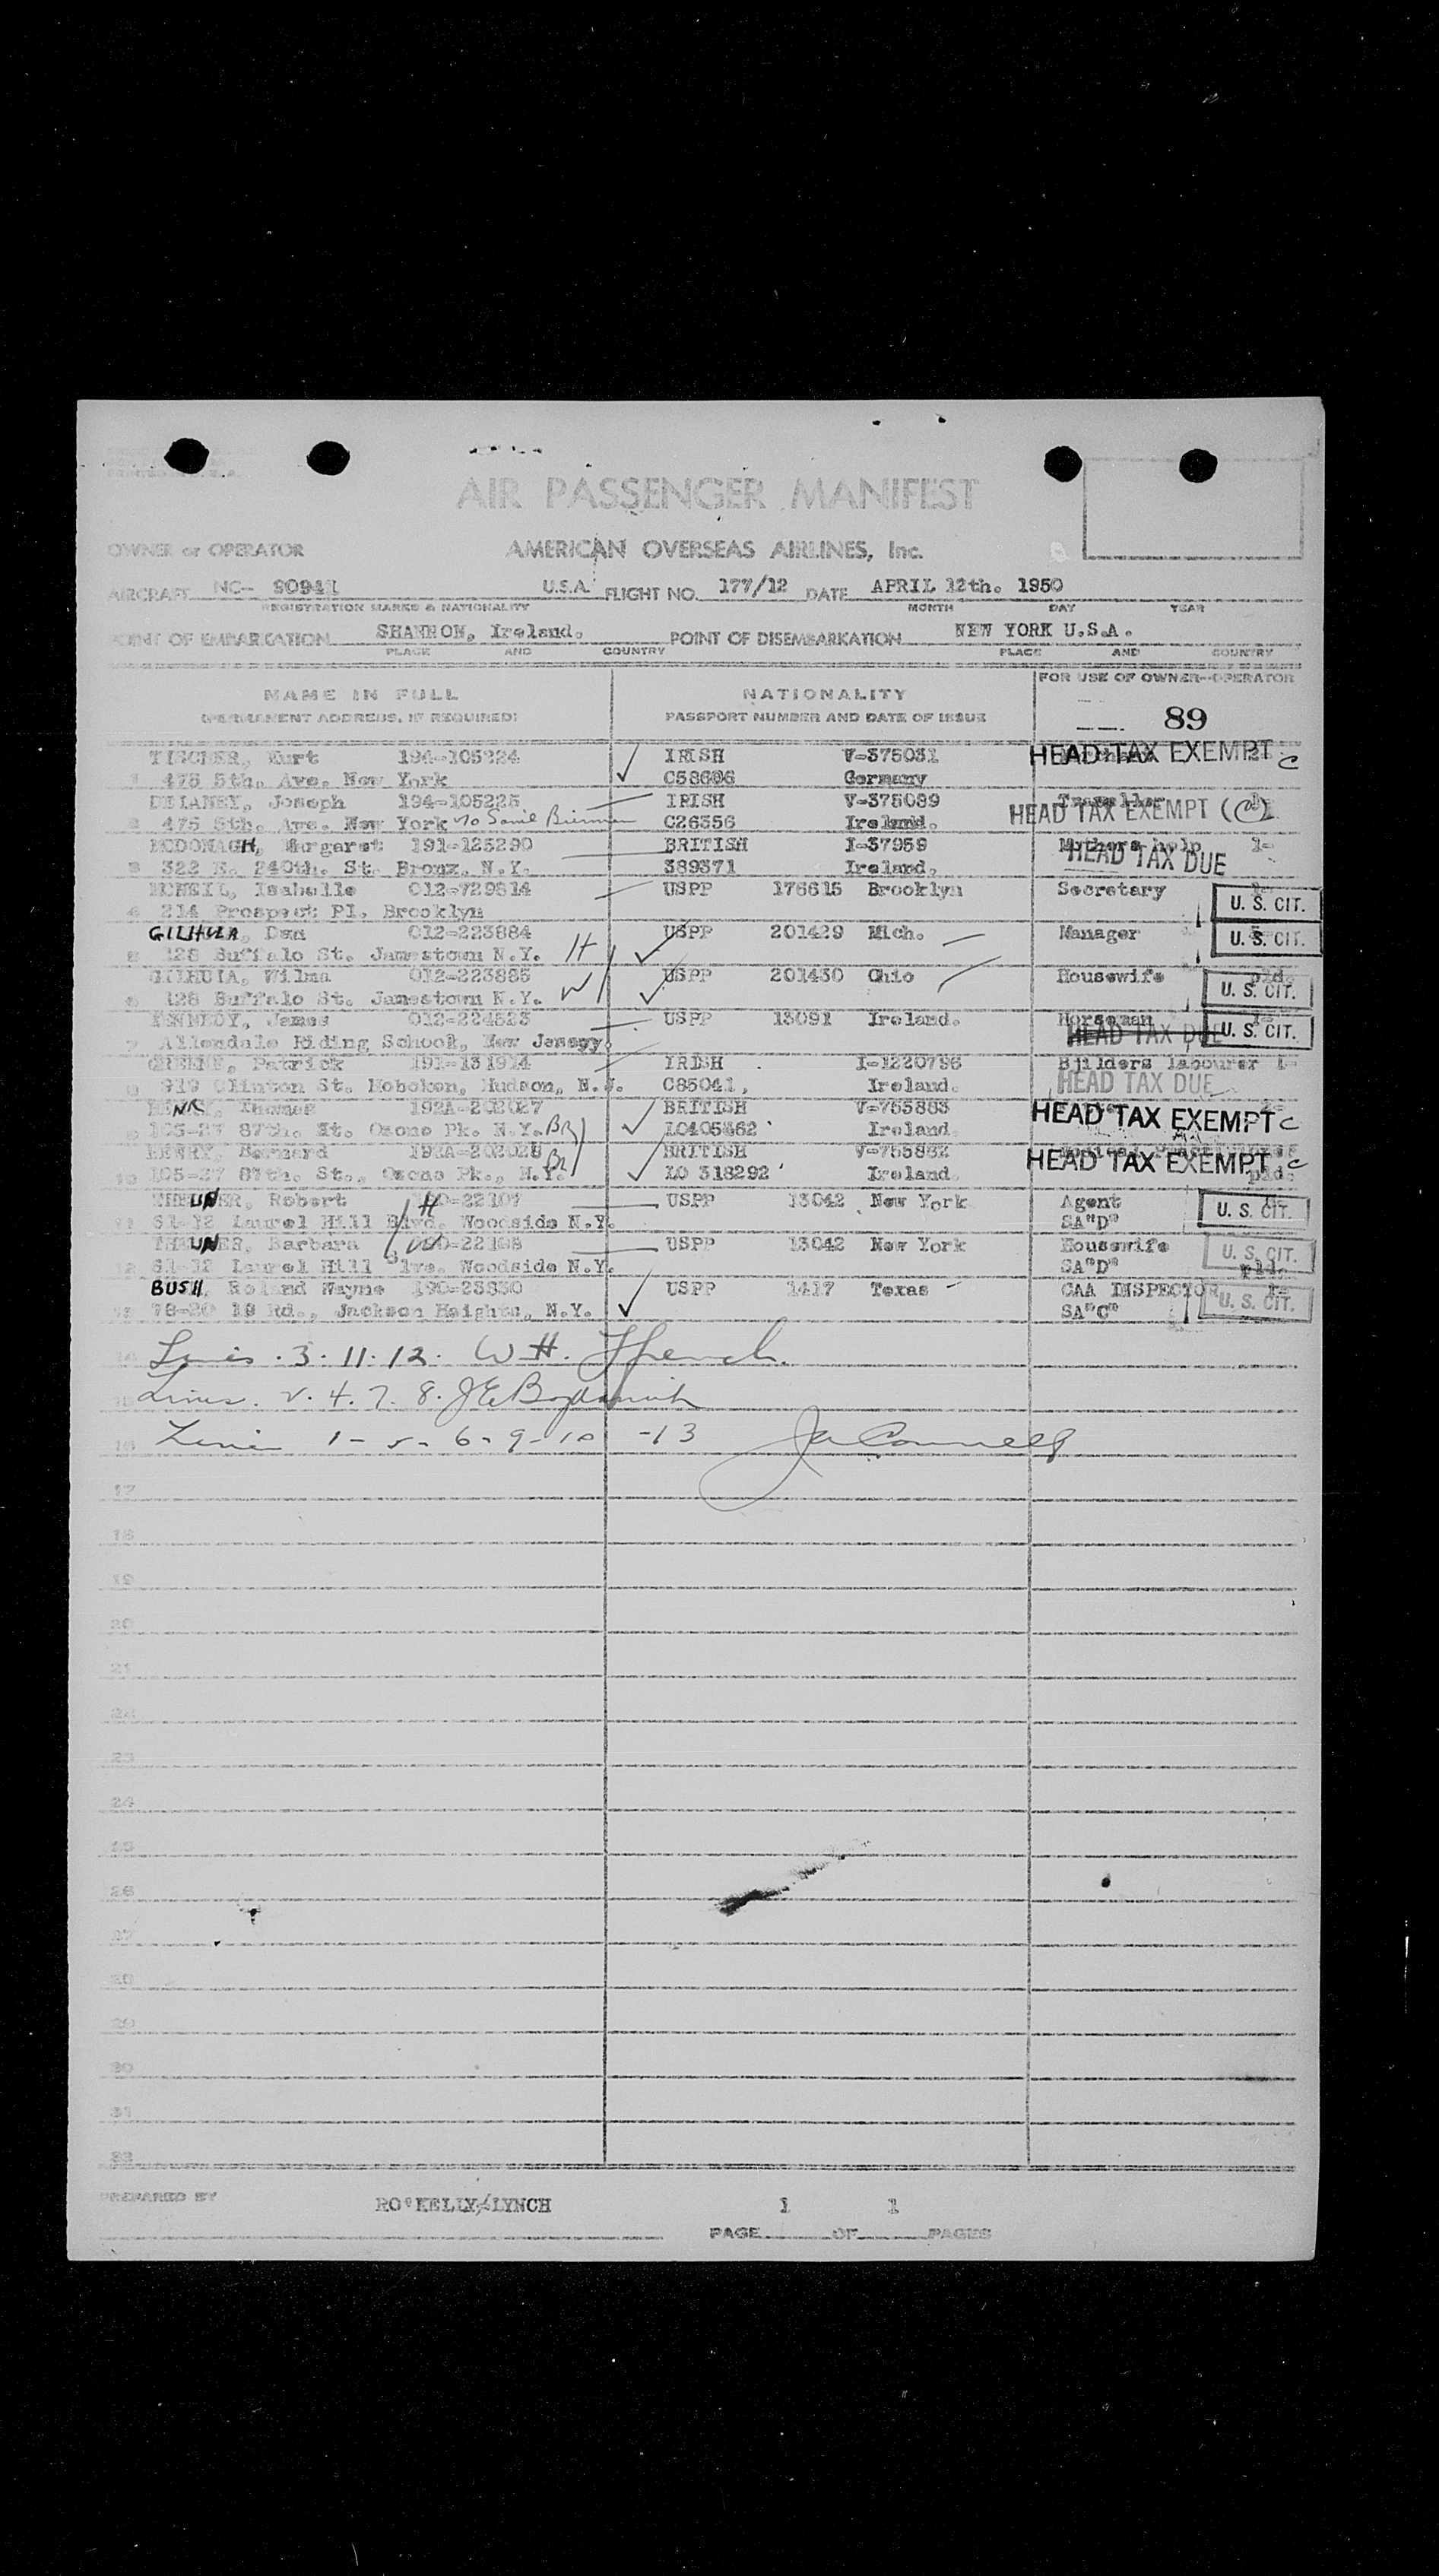 AIR PASSENGER MANIFEST
OWNER or OPERATOR AMERICAN OVERSEAS AIRLINES, Inc.
AIRCRAFT NC- 90941 U.S.A. FLIGHT NO. 177/12 DATE APRIL 12th. 1950
REGISTRATION MARKS & NATIONALITY MONTH DAY YEAR
POINT OF EMBARCATION SHANNON, Ireland. POINT OF DISEMBARKATION NEW YORK U.S.A.
PLACE AND COUNTRY PLACE AND COUNTRY
NAME IN FULL NATIONALITY FOR USE OF OWNER-OPERATOR
(PERMANENT ADDRESS, IF REQUIRED) PASSPORT NUMBER AND DATE OF ISSUE 89
TISCHER, Kurt 194-105224 IRISH V-375031 HEAD TAX EXEMPT C
1 475 5th. Ave. New York C58606 Germany
DELANEY, Joseph 194-105225 IRISH V-375089 Traveller 1
2 475 5th. Ave. New York C26356 Ireland. HEAD TAX EXEMPT (C)
MCDONAGH, Margaret 191-125290 BRITISH I-37959 Mothers help 1-
3 322 E. 240th. St. Bronx. N.Y. 389371 Ireland. HEAD TAX DUE
MCNEIL, Isabelle 012-729814 USPP 176615 Brooklyn Secretary
4 214 Prospect Pl. Brooklyn U. S. CIT.
GILHULA, Dan 012-223884 USPP 201429 Mich. Manager U. S. CIT.
5 128 Buffalo St. Jamestown N.Y. H
GILHULA, Wilma 012-223885 USPP 201430 Ohio Housewife pld.
6 128 Buffalo St. Jamestown N.Y. W U. S. CIT.
KENNEDY, James 012-224523 USPP 13091 Ireland. Horseman
7 Allendale Riding School, New Jersey. HEAD TAX DUE U. S. CIT.
GREENE, Patrick 191-131914 IRISH I-1220796 Builders labourer 1-
8 919 Clinton St. Hoboken, Hudson, N.J. C85041, Ireland. HEAD TAX DUE
HENRY, Thomas 192A-202027 BRITISH V-755883 HEAD TAX EXEMPT C
9 105-27 87th. St. Ozone Pk. N.Y. BR LO405862 Ireland
HENRY, Bernard 192A-202028 BRITISH V-755882 HEAD TAX EXEMPT C
10 105-27 87th. St., Ozone Pk., N.Y. BR LO 318292 Ireland. pld.
THEUNER, Robert H 22107 USPP 13042 New York Agent
11 61-12 Laurel Hill Blvd. Woodside N.Y. SA"D" U. S. CIT.
THEUNER, Barbara W 22108 USPP 13042 New York Housewife U. S. CIT.
12 61-12 Laurel Hill Blve. Woodside N.Y. SA"D" pld.
BUSH, Roland Wayne 190-23830 USPP 1417 Texas CAA INSPECTOR 1-
13 78-20 19 Rd., Jackson Heights, N.Y. SA"C" U. S. CIT.
14 Lines. 3. 11. 12. W. H. French.
15 Lines. 2. 4. 7. 8.
16 Lines 1- 5- 6- 9- 10 -13 Ja Connell
17
18
19
20
21
22
23
24
25
26
27
28
29
30
31
32
PREPARED BY RO'KELLY/LYNCH 1 1
PAGE OF PAGES